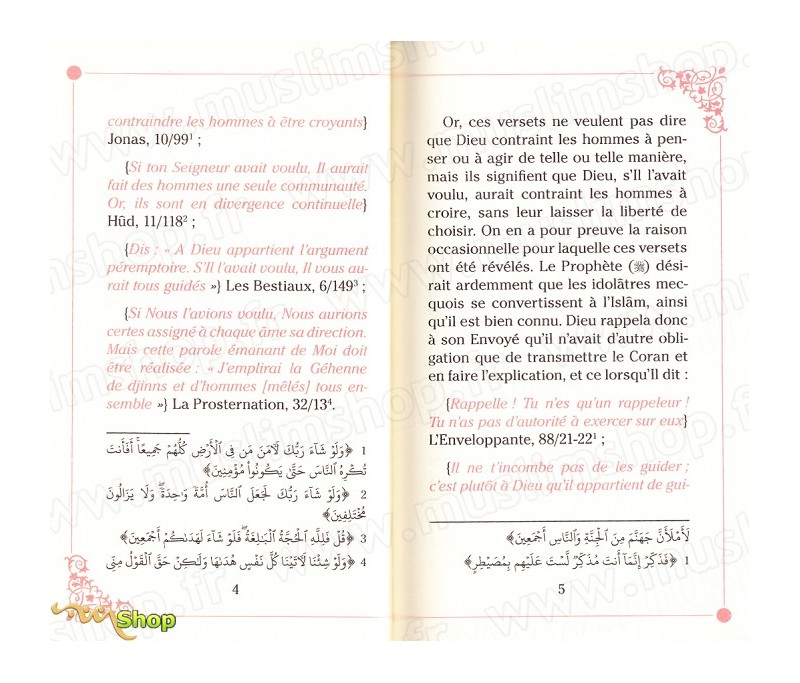 contraindre les hommes à être croyants}
Jonas, 10/99¹ ;
{Si ton Seigneur avait voulu, Il aurait
fait des hommes une seule communauté.
Or, ils sont en divergence continuelle}
Hūd, 11/118² ;
{Dis : « A Dieu appartient l'argument
péremptoire. S'Il l'avait voulu, Il vous au-
rait tous guidés »} Les Bestiaux, 6/149³ ;
{Si Nous l'avions voulu, Nous aurions
certes assigné à chaque âme sa direction.
Mais cette parole émanant de Moi doit
être réalisée : « J'emplirai la Géhenne
de djinns et d'hommes [mêlés] tous en-
semble »} La Prosternation, 32/13⁴.
1 ﴿وَلَوْ شَآءَ رَبُّكَ لَآمَنَ مَن فِى ٱلْأَرْضِ كُلُّهُمْ جَمِيعًا ۚ أَفَأَنتَ
تُكْرِهُ ٱلنَّاسَ حَتَّىٰ يَكُونُوا۟ مُؤْمِنِينَ﴾
2 ﴿وَلَوْ شَآءَ رَبُّكَ لَجَعَلَ ٱلنَّاسَ أُمَّةً وَٰحِدَةً ۖ وَلَا يَزَالُونَ
مُخْتَلِفِينَ﴾
3 ﴿قُلْ فَلِلَّهِ ٱلْحُجَّةُ ٱلْبَٰلِغَةُ ۖ فَلَوْ شَآءَ لَهَدَىٰكُمْ أَجْمَعِينَ﴾
4 ﴿وَلَوْ شِئْنَا لَآتَيْنَا كُلَّ نَفْسٍ هُدَىٰهَا وَلَٰكِنْ حَقَّ ٱلْقَوْلُ مِنِّى
4
Shop
Or, ces versets ne veulent pas dire
que Dieu contraint les hommes à pen-
ser ou à agir de telle ou telle manière,
mais ils signifient que Dieu, s'Il l'avait
voulu, aurait contraint les hommes à
croire, sans leur laisser la liberté de
choisir. On en a pour preuve la raison
occasionnelle pour laquelle ces versets
ont été révélés. Le Prophète (ﷺ) dési-
rait ardemment que les idolâtres mec-
quois se convertissent à l'Islām, ainsi
qu'il est bien connu. Dieu rappela donc
à son Envoyé qu'il n'avait d'autre obli-
gation que de transmettre le Coran et
en faire l'explication, et ce lorsqu'Il dit :
{Rappelle ! Tu n'es qu'un rappeleur !
Tu n'as pas d'autorité à exercer sur eux}
L'Enveloppante, 88/21-22¹ ;
{Il ne t'incombe pas de les guider ;
c'est plutôt à Dieu qu'il appartient de gui-
لَأَمْلَأَنَّ جَهَنَّمَ مِنَ ٱلْجِنَّةِ وَٱلنَّاسِ أَجْمَعِينَ﴾
1 ﴿فَذَكِّرْ إِنَّمَآ أَنتَ مُذَكِّرٌ لَّسْتَ عَلَيْهِم بِمُصَيْطِرٍ﴾
5